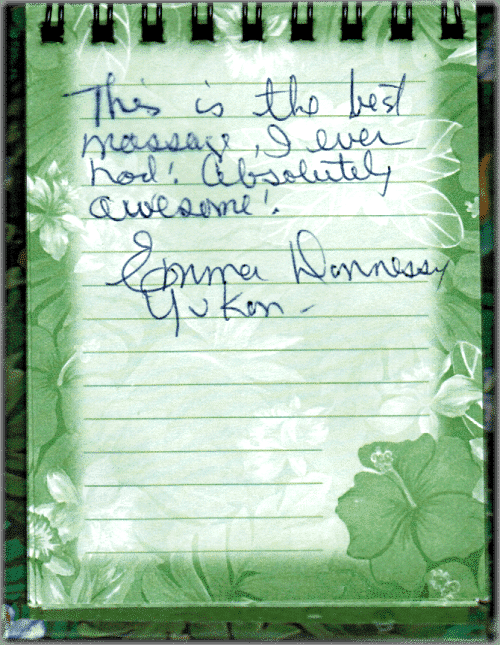 This is the best
massage, I ever
had! Absolutely
awesome!
Emma Donnessy
Yukon -